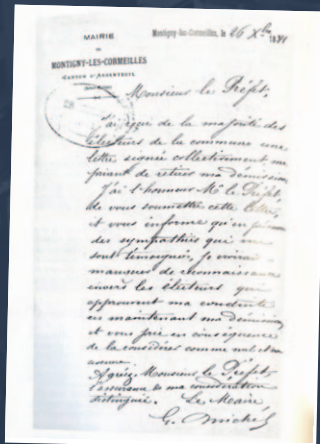 MAIRIE
DE
MONTIGNY-LES-CORMEILLES
CANTON D'ARGENTEUIL
Montigny-les-Cormeilles, le 26 Xbre 18
Monsieur le Préfet,
J'ai reçu de la majorité des
électeurs de la commune une
lettre signée collectivement me
priant de retirer ma démission
J'ai l'honneur Mr le Préfet
de vous soumettre cette lettre
et vous informe qu'en
des sympathies qui me
sont témoignées, je croirais
manquer de reconnaissance
envers les électeurs qui
approuvent ma conduite
en maintenant ma démission
et vous prie en conséquence
de la considérer comme nulle et non
avenue.
Agréez Monsieur le Préfet
l'assurance de ma considération
distinguée. Le Maire